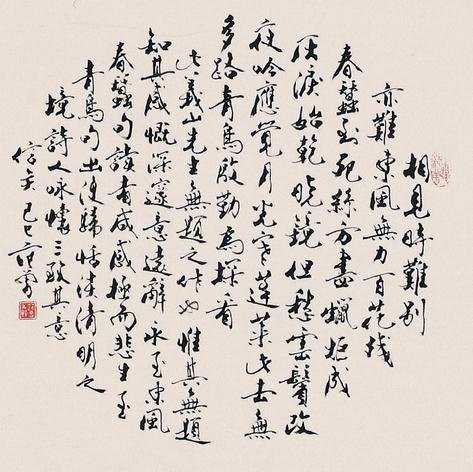 相見時難別
亦難東風無力百花殘
春蠶到死絲方盡蠟炬成
灰淚始乾曉鏡但愁雲鬢改
夜吟應覺月光寒蓬萊此去無
多路青鳥殷勤為探看
此義山先生無題之作也惟其無題
知其感慨深邃意遠辭永至東風
春蠶句讀者咸感極而悲生至
青鳥句出復歸恬淡清明之
境詩人咏懷三致其意
信矣己巳范曾